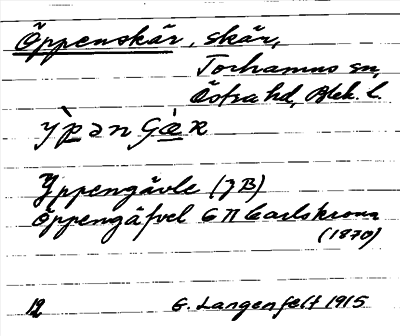 Öppenskär, skär,
Torhamns sn,
Östra hd, Blek. l.
Yppengävle (JB)
Öppengäfvel GΠ Carlskrona
(1870)
12 G. Langenfelt 1915